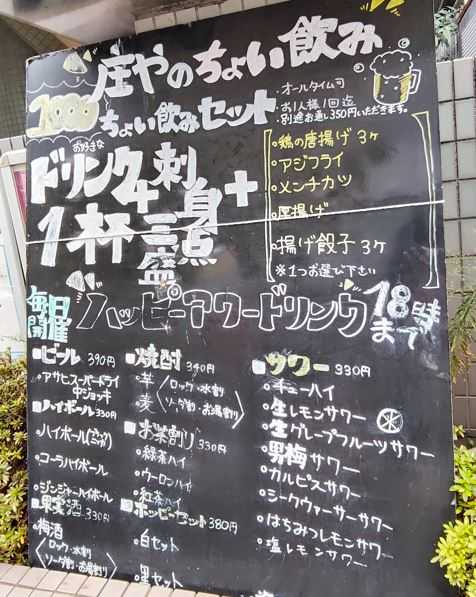 庄やのちょい飲み
1000 ちょい飲みセット
・オールタイム可
・お1人様1回迄
・別途お通し350円いただきます。
お好きな
ドリンク1杯
+
刺身三点盛
+
・鶏の唐揚げ 3ヶ
・アジフライ
・メンチカツ
・厚揚げ
・揚げ餃子 3ヶ
※1つお選び下さい
毎日開催
ハッピーアワードリンク
18時まで
■ビール 390円
・アサヒスーパードライ
中ジョッキ
■ハイボール 330円
・ハイボール
・コーラハイボール
・ジンジャーハイボール
■果実酒 330円
・梅酒
〈ロック・水割
ソーダ割・お湯割〉
■焼酎 340円
・芋
・麦
〈ロック・水割
ソーダ割・お湯割〉
■お茶割り 330円
・緑茶ハイ
・ウーロンハイ
・紅茶ハイ
■ホッピーセット 380円
・白セット
・黒セット
■サワー 330円
・チューハイ
・生レモンサワー
・生グレープフルーツサワー
・男梅サワー
・カルピスサワー
・シークヮーサーサワー
・はちみつレモンサワー
・塩レモンサワー